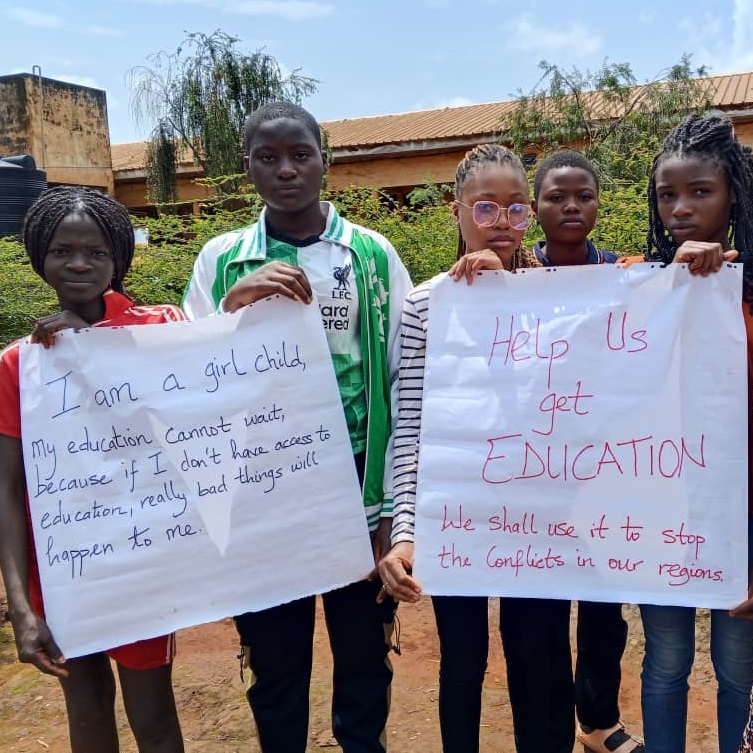 I am a girl child,
My education cannot wait,
because if I don't have access to
education, really bad things will
happen to me.
L.F.C
Help Us
get
EDUCATION
We shall use it to stop
the Conflicts in our regions.